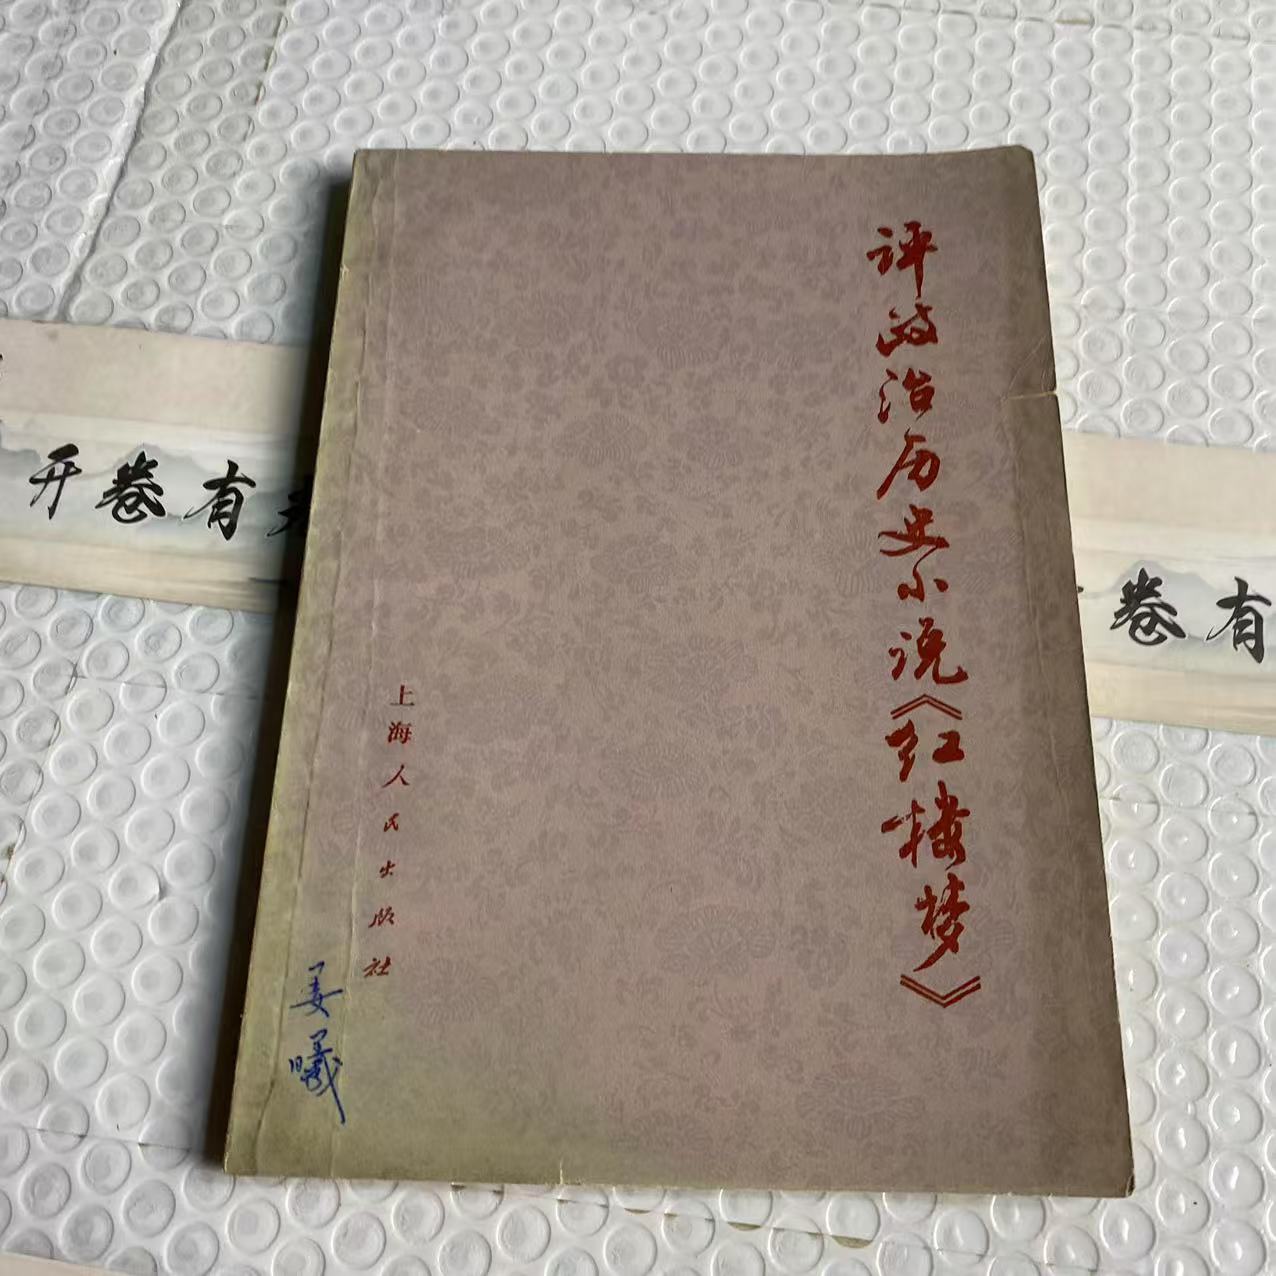 评政治历史小说《红楼梦》
上海人民出版社
姜曦
开卷有
卷有